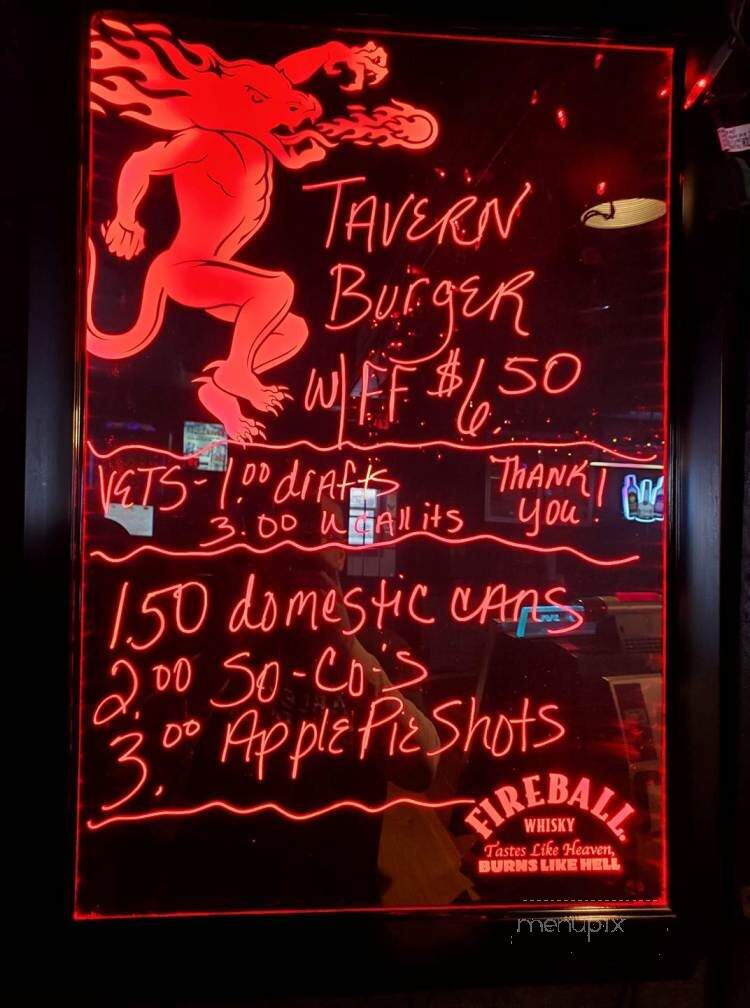 TAVERN
BurgER
W/FF $6.50
VETS - 1.00 drAfts
3.00 U CAll its
THANK
you!
1.50 domestic cAns
2.00 So-Co's
3.00 ApplE PiE Shots
FIREBALL
WHISKY
Tastes Like Heaven,
BURNS LIKE HELL
menupix